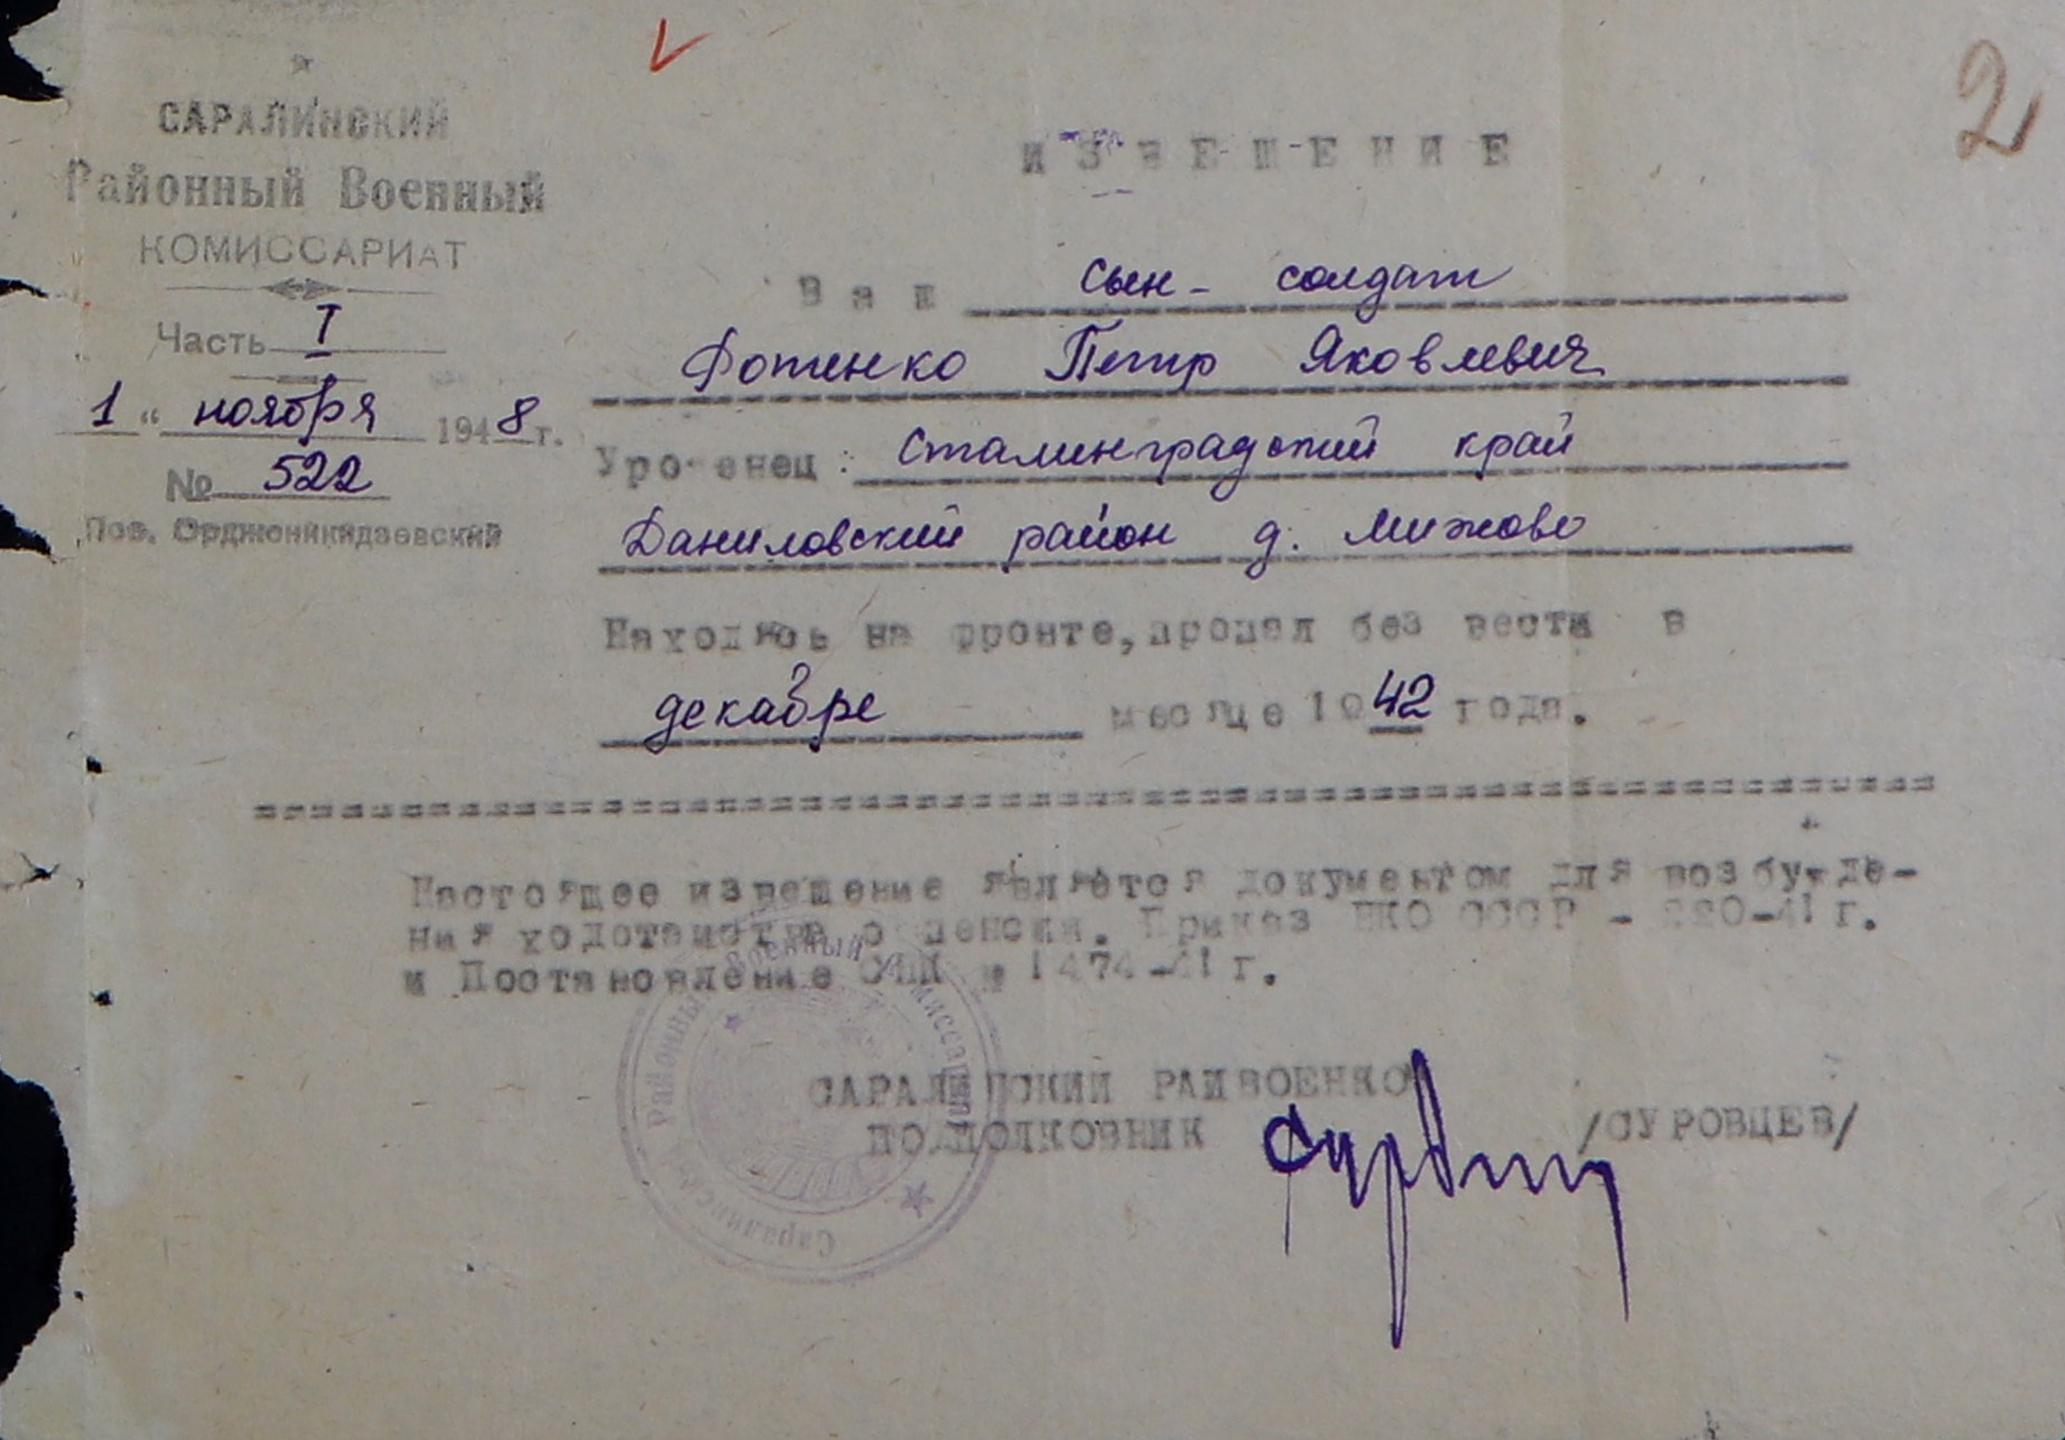 САРАЛИНСКИЙ
Районный Военный
КОМИССАРИАТ
Часть I
1 " ноября 1948 г.
№ 522
Пос. Орджоникидзевский
2
ИЗВЕЩЕНИЕ
Ваш сын - солдат
Фотенко Петр Яковлевич
Уроженец: Сталинградский край
Даниловский район д. Мижово
Находясь на фронте, пропал без вести в
декабре месяце 1942 года.
Настоящее извещение является документом для возбужде-
ния ходотайства о пенсии. Приказ НКО СССР - 220-41 г.
и Постановление СНК № 1474-41 г.
САРАЛИНСКИЙ РАЙВОЕНКОМ
ПОДПОЛКОВНИК /СУРОВЦЕВ/
Саралинский Районный Военный Комиссариат